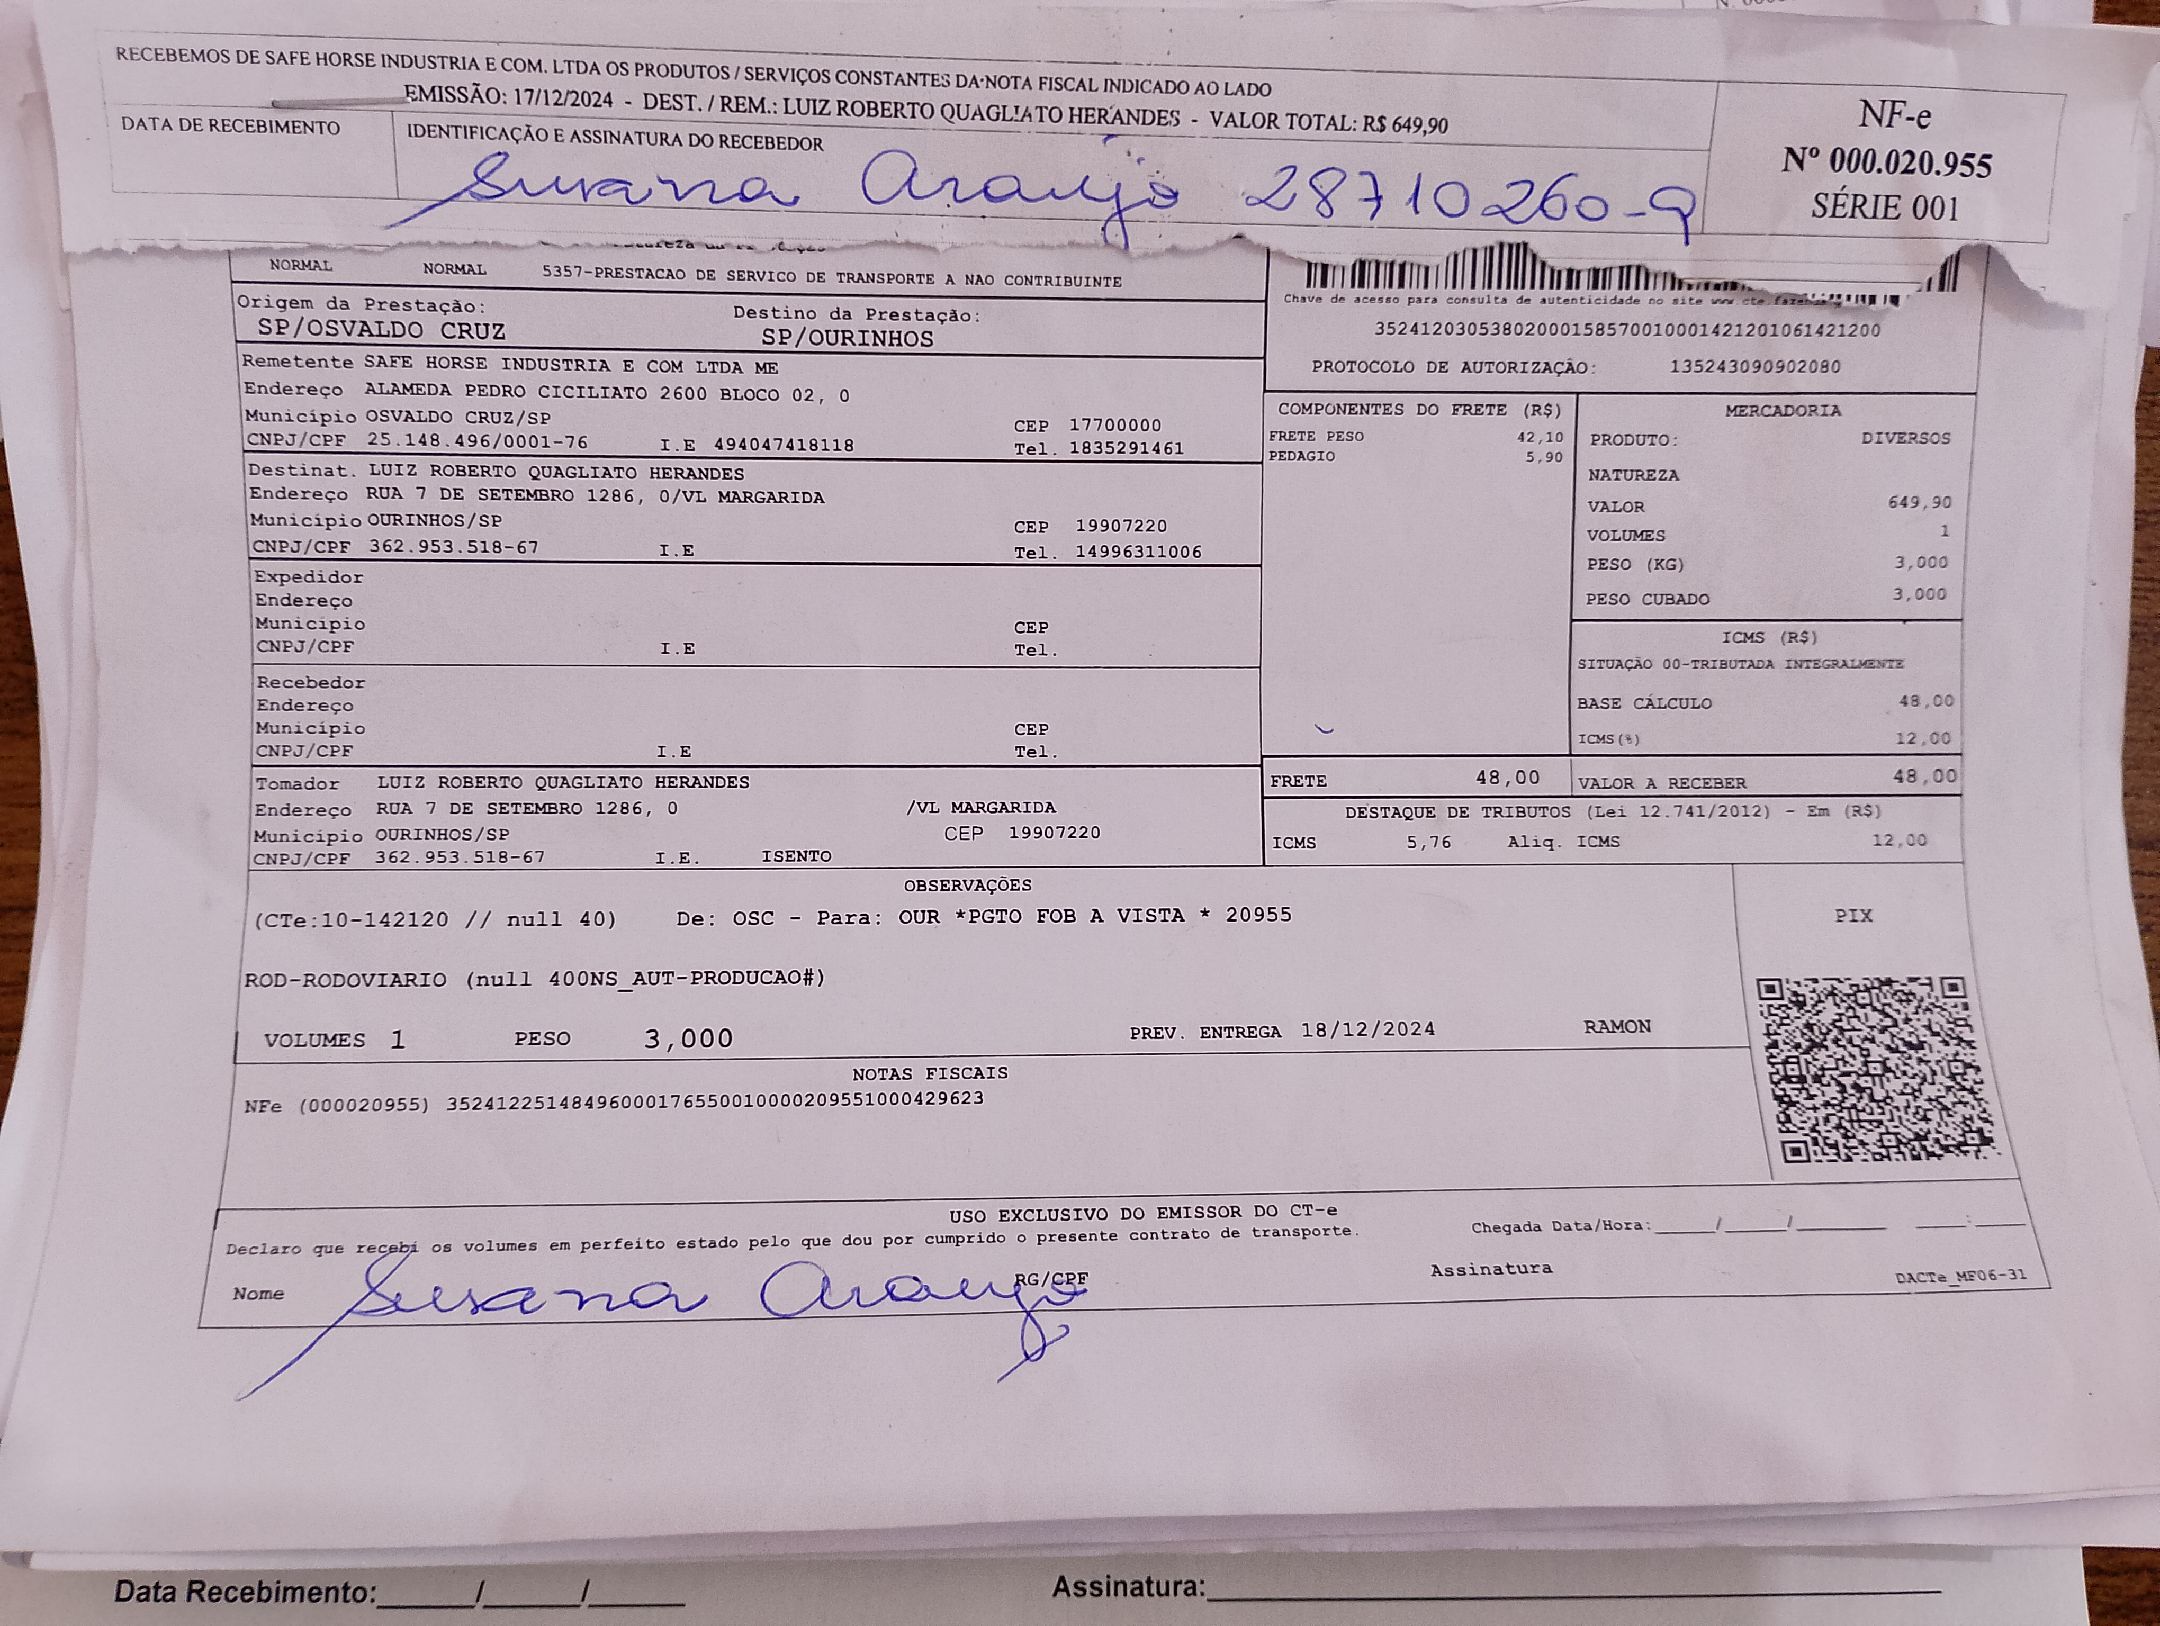 RECEBEMOS DE SAFE HORSE INDUSTRIA E COM. LTDA OS PRODUTOS / SERVIÇOS CONSTANTES DA NOTA FISCAL INDICADO AO LADO
EMISSÃO: 17/12/2024 - DEST. / REM.: LUIZ ROBERTO QUAGLIATO HERANDES - VALOR TOTAL: R$ 649,90
DATA DE RECEBIMENTO
IDENTIFICAÇÃO E ASSINATURA DO RECEBEDOR
Susana Araujo 28710260-9
NF-e
Nº 000.020.955
SÉRIE 001
NORMAL NORMAL 5357-PRESTACAO DE SERVICO DE TRANSPORTE A NAO CONTRIBUINTE
Origem da Prestação: Destino da Prestação:
SP/OSVALDO CRUZ SP/OURINHOS
Chave de acesso para consulta de autenticidade no site www.cte.fazenda
35241203053802000158570010001421201061421200
PROTOCOLO DE AUTORIZAÇÃO: 135243090902080
Remetente SAFE HORSE INDUSTRIA E COM LTDA ME
Endereço ALAMEDA PEDRO CICILIATO 2600 BLOCO 02, 0
Município OSVALDO CRUZ/SP CEP 17700000
CNPJ/CPF 25.148.496/0001-76 I.E 494047418118 Tel. 1835291461
Destinat. LUIZ ROBERTO QUAGLIATO HERANDES
Endereço RUA 7 DE SETEMBRO 1286, 0/VL MARGARIDA
Município OURINHOS/SP CEP 19907220
CNPJ/CPF 362.953.518-67 I.E Tel. 14996311006
Expedidor
Endereço
Município CEP
CNPJ/CPF I.E Tel.
Recebedor
Endereço
Município CEP
CNPJ/CPF I.E Tel.
Tomador LUIZ ROBERTO QUAGLIATO HERANDES
Endereço RUA 7 DE SETEMBRO 1286, 0 /VL MARGARIDA
Município OURINHOS/SP CEP 19907220
CNPJ/CPF 362.953.518-67 I.E. ISENTO
COMPONENTES DO FRETE (R$)
FRETE PESO 42,10
PEDAGIO 5,90
MERCADORIA
PRODUTO: DIVERSOS
NATUREZA
VALOR 649,90
VOLUMES 1
PESO (KG) 3,000
PESO CUBADO 3,000
ICMS (R$)
SITUAÇÃO 00-TRIBUTADA INTEGRALMENTE
BASE CÁLCULO 48,00
ICMS(%) 12,00
FRETE 48,00 VALOR A RECEBER 48,00
DESTAQUE DE TRIBUTOS (Lei 12.741/2012) - Em (R$)
ICMS 5,76 Aliq. ICMS 12,00
OBSERVAÇÕES
(CTe:10-142120 // null 40) De: OSC - Para: OUR *PGTO FOB A VISTA * 20955
PIX
ROD-RODOVIARIO (null 400NS_AUT-PRODUCAO#)
VOLUMES 1 PESO 3,000 PREV. ENTREGA 18/12/2024 RAMON
NOTAS FISCAIS
NFe (000020955) 35241225148496000176550010000209551000429623
USO EXCLUSIVO DO EMISSOR DO CT-e
Declaro que recebi os volumes em perfeito estado pelo que dou por cumprido o presente contrato de transporte.
Chegada Data/Hora:_____/_____/_______ ____:____
Nome Susana Araujo RG/CPF Assinatura
DACTe_MF06-31
Data Recebimento:______/______/______ Assinatura:______